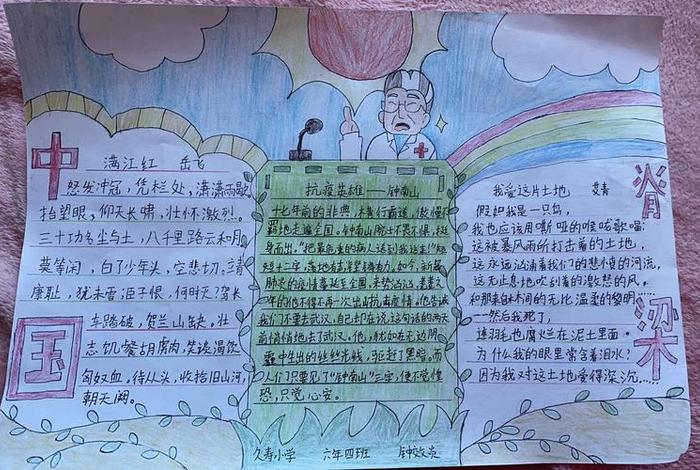 中
国
满江红 岳飞
怒发冲冠，凭栏处，潇潇雨歇
抬望眼，仰天长啸，壮怀激烈。
三十功名尘与土，八千里路云和月
莫等闲，白了少年头，空悲切，靖
康耻，犹未雪；臣子恨，何时灭？驾长
车踏破，贺兰山缺，壮
志饥餐胡虏肉，笑谈渴饮
匈奴血。待从头，收拾旧山河，
朝天阙。
抗疫英雄——钟南山
十七年前的非典，横行霸道，傲慢不
羁地走遍全国，钟南山院士不畏不惧，挺
身而出，"把最危重的病人送到我这来！"短
短十二字，落地有声，坚强有力。如今，新冠
肺炎的疫情蔓延至全国，来势汹汹，耄耋之
年的他不得不再一次出击抗击疫情。他告诫
我们不要去武汉，自己却在说这句话的两天
前悄悄地去了武汉。他，犹如在无边阴
霾中生出的丝丝光线，驱赶了黑暗，而
人们只要见了"钟南山"三字，便不觉惶
恐，只觉心安。
脊
梁
我爱这片土地 艾青
假如我是一只鸟，
我也应该用嘶哑的喉咙歌唱：
这被暴风雨所打击着的土地，
这永远汹涌着我们的悲愤的河流，
这无止息地吹刮着的激怒的风，
和那来自林间的无比温柔的黎明……
——然后我死了，
连羽毛也腐烂在泥土里面。
为什么我的眼里常含着泪水？
因为我对这土地爱得深沉……
久寿小学 六年四班 钟